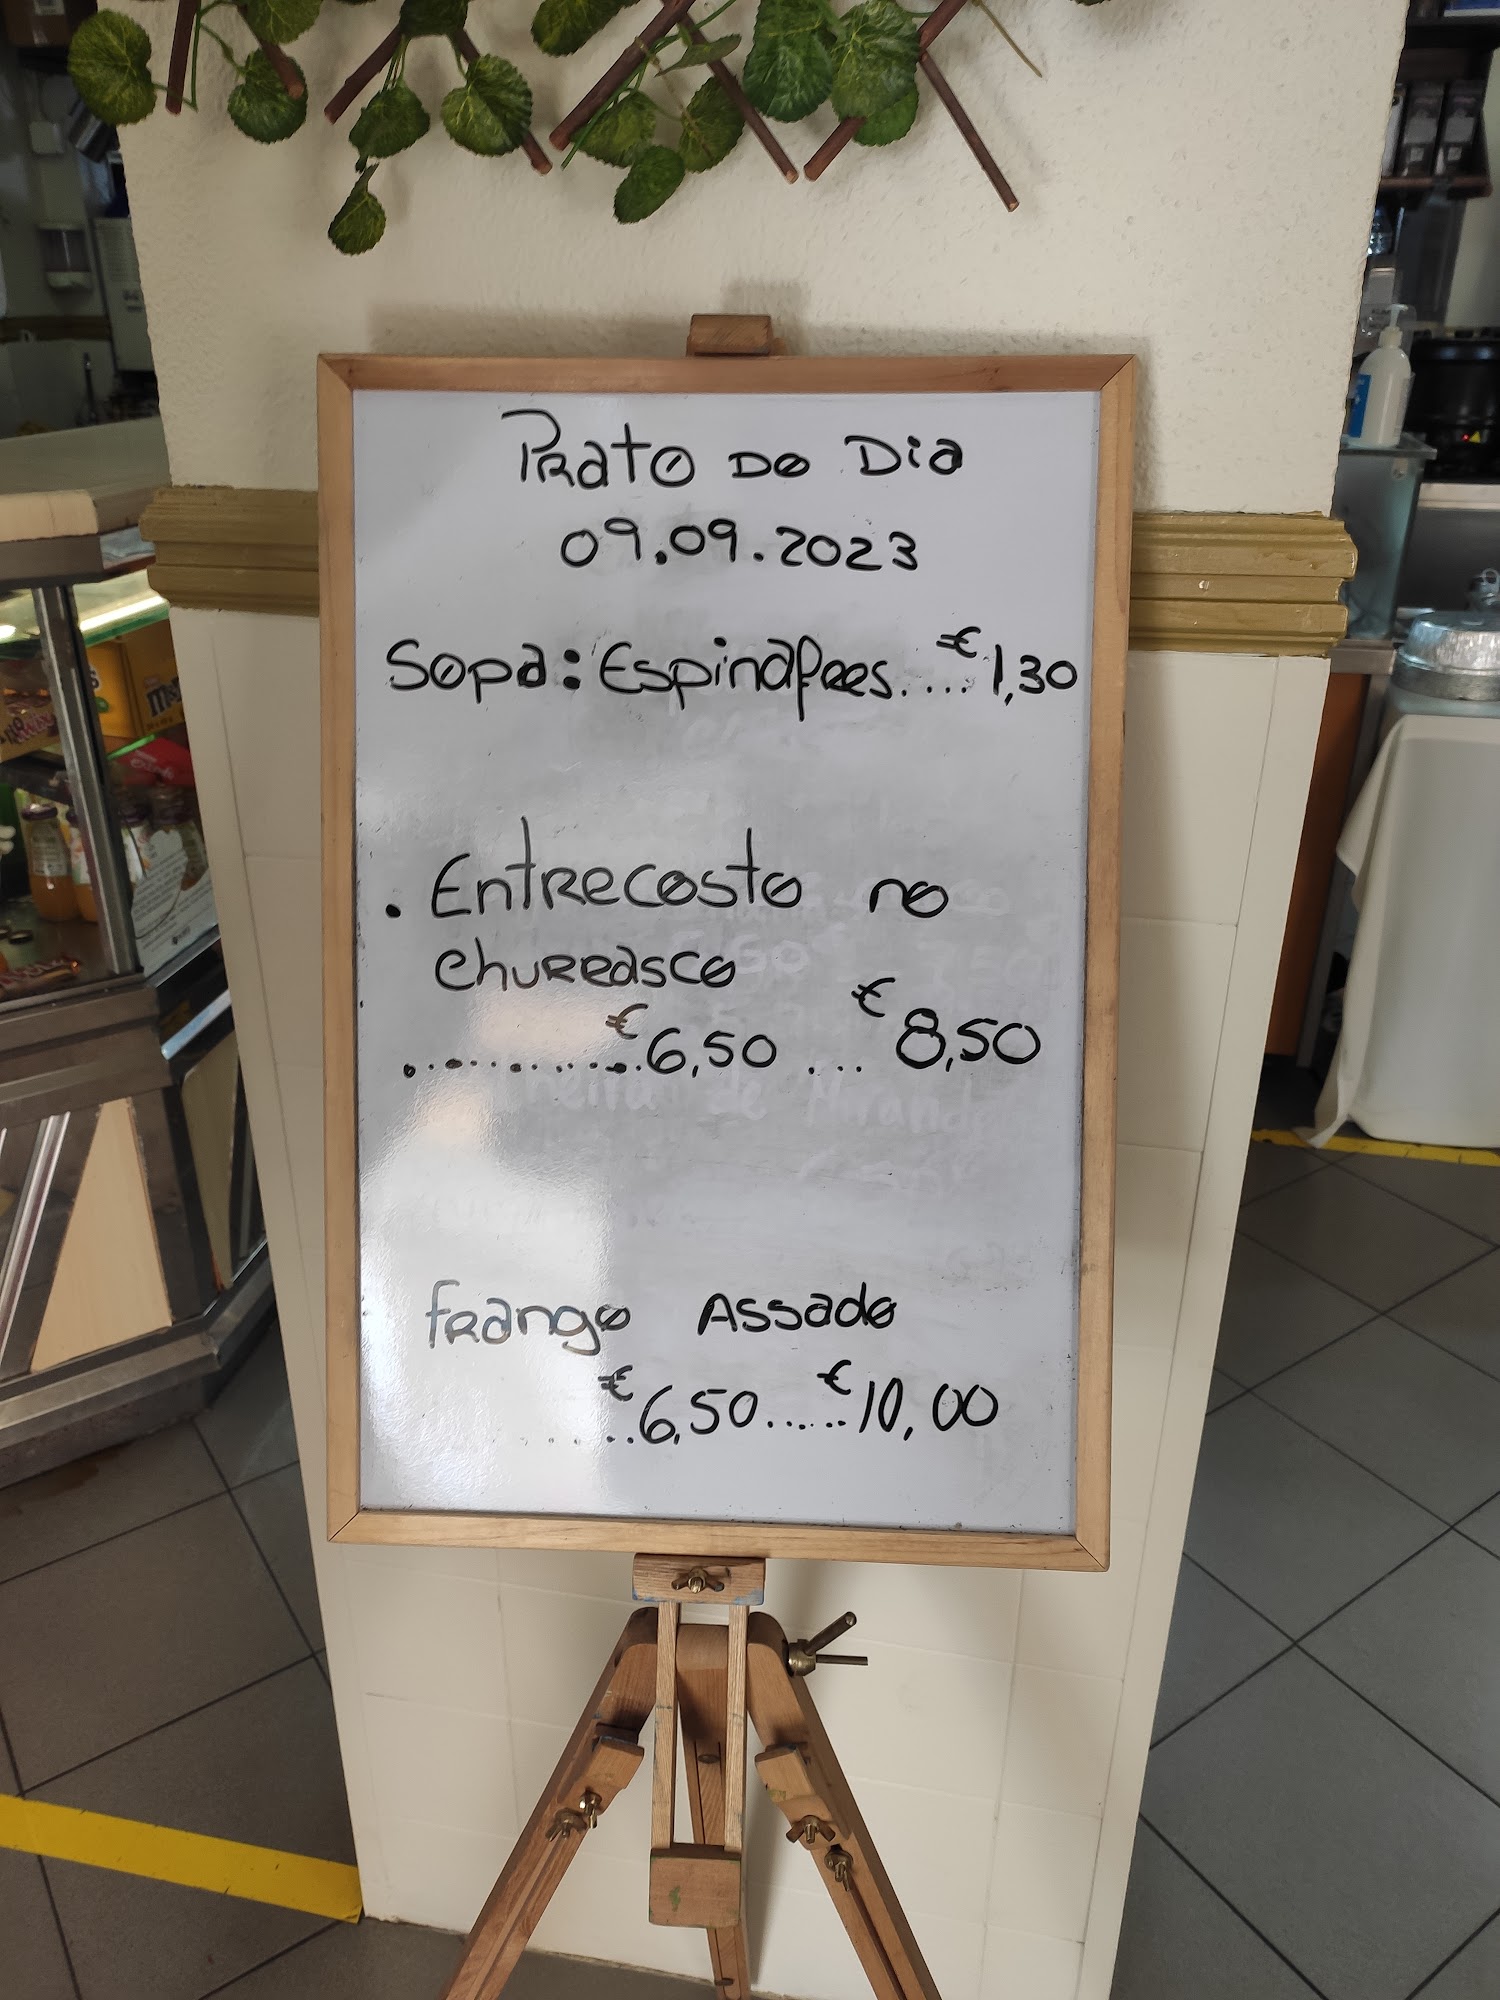 Prato do Dia
09.09.2023
Sopa: Espinafres....€1,30
. Entrecosto no
churrasco
............€6,50 ... €8,50
frango Assado
......€6,50......€10,00
m&m's